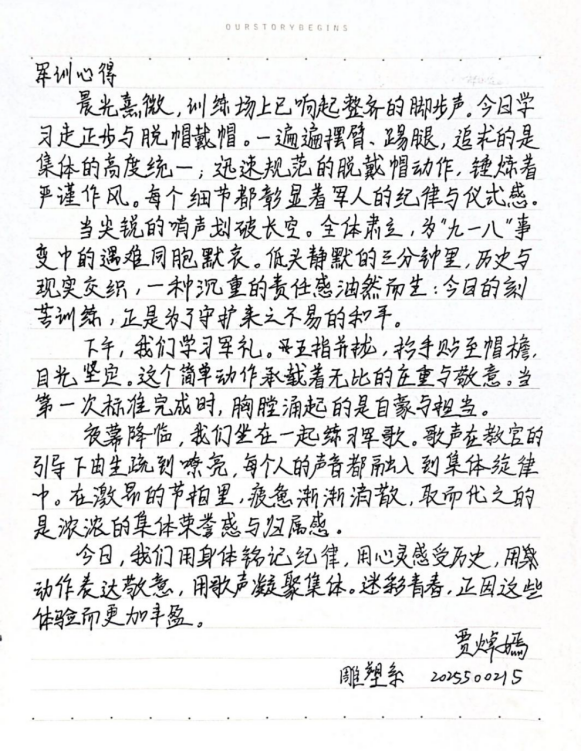 OURSTORYBEGINS
军训心得
晨光熹微，训练场上已响起整齐的脚步声。今日学
习走正步与脱帽戴帽。一遍遍摆臂、踢腿，追求的是
集体的高度统一；迅速规范的脱戴帽动作，锤炼着
严谨作风。每个细节都彰显着军人的纪律与仪式感。
当尖锐的哨声划破长空。全体肃立，为“九一八”事
变中的遇难同胞默哀。低头静默的三分钟里，历史与
现实交织，一种沉重的责任感油然而生：今日的刻
苦训练，正是为了守护来之不易的和平。
下午，我们学习军礼。五指并拢，抬手贴至帽檐，
目光坚定。这个简单动作承载着无比的庄重与敬意。当
第一次标准完成时，胸膛涌起的是自豪与担当。
夜幕降临，我们坐在一起练习军歌。歌声在教官的
引导下由生疏到嘹亮，每个人的声音都融入到集体旋律
中。在激昂的节拍里，疲惫渐渐消散，取而代之的
是浓浓的集体荣誉感与归属感。
今日，我们用身体铭记纪律，用心灵感受历史，用
动作表达敬意，用歌声凝聚集体。迷彩青春，正因这些
体验而更加丰盈。
贾焯嫣
雕塑系 2025500215